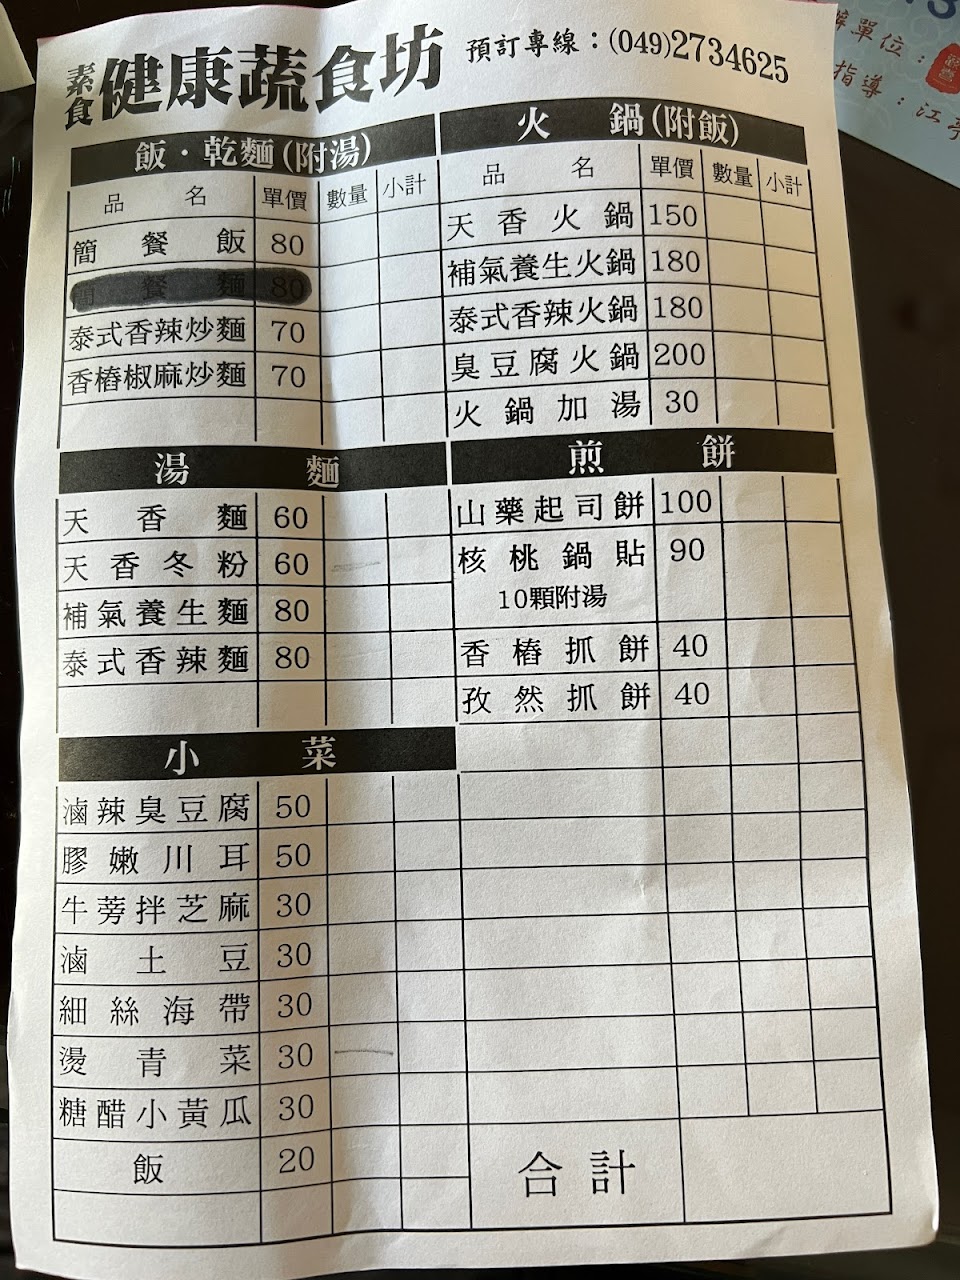 素食 健康蔬食坊 預訂專線：(049)2734625
飯．乾麵(附湯)
品名 單價 數量 小計
簡餐飯 80
簡餐麵 80
泰式香辣炒麵 70
香樁椒麻炒麵 70
湯麵
天香麵 60
天香冬粉 60 一
補氣養生麵 80
泰式香辣麵 80
小菜
滷辣臭豆腐 50
膠嫩川耳 50
牛蒡拌芝麻 30
滷土豆 30
細絲海帶 30
燙青菜 30 一
糖醋小黃瓜 30
飯 20
火鍋(附飯)
品名 單價 數量 小計
天香火鍋 150
補氣養生火鍋 180
泰式香辣火鍋 180
臭豆腐火鍋 200
火鍋加湯 30
煎餅
山藥起司餅 100
核桃鍋貼 90
10顆附湯
香樁抓餅 40
孜然抓餅 40
合計
單位：
指導：江